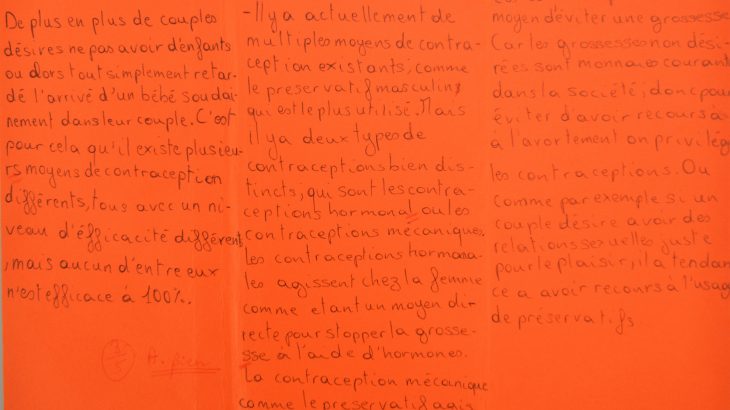 De plus en plus de couples
désires ne pas avoir d'enfants
ou alors tout simplement retar-
dé l'arrivé d'un bébé soudai-
nement dans leur couple. C'est
pour cela qu'il existe plusieu-
rs moyens de contraception
différents, tous avec un ni-
veau d'éfficacité différent
, mais aucun d'entre eux
n'est efficace à 100%.
A. bien
- Il y a actuellement de
multiples moyens de contra-
ception existants, comme
le preservatif masculin,
qui est le plus utilisé. Mais
il y a deux types de
contraceptions bien dis-
tincts, qui sont les contra-
ceptions hormonal ou les
contraceptions mécaniques.
Les contraceptions hormona-
les agissent chez la femme
comme etant un moyen di-
recte pour stopper la grosse-
sse à l'aide d'hormones.
La contraception mécanique
comme le preservatif agis
moyen d'éviter une grossesse
Car les grossesses non dési-
rées sont monnaies courant
dans la société; donc pour
éviter d'avoir recours à
à l'avortement on privilég
les contraceptions. Ou
comme par exemple si un
couple désire avoir des
relations sexuelles juste
pour le plaisir, il a tendan
ce a avoir recours à l'usag
de préservatifs